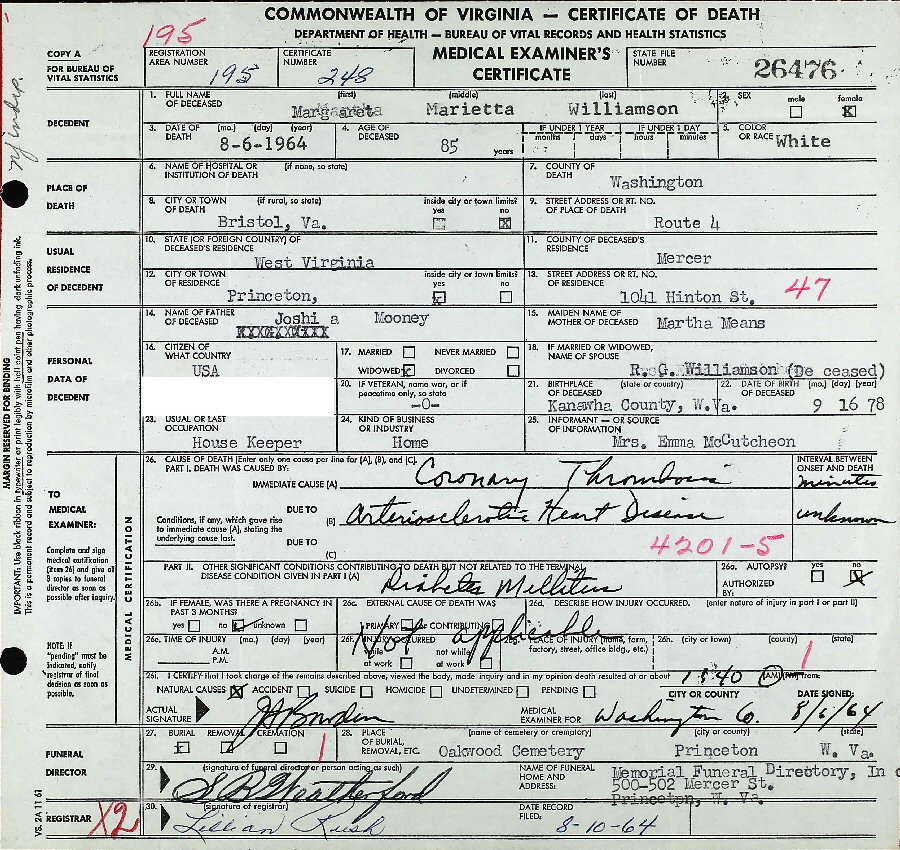 COMMONWEALTH OF VIRGINIA — CERTIFICATE OF DEATH
DEPARTMENT OF HEALTH — BUREAU OF VITAL RECORDS AND HEALTH STATISTICS
195
COPY A
FOR BUREAU OF
VITAL STATISTICS
REGISTRATION AREA NUMBER 195
CERTIFICATE NUMBER 248
MEDICAL EXAMINER'S
CERTIFICATE
STATE FILE NUMBER 26476
DECEDENT
1. FULL NAME OF DECEASED (first) (middle) (last)
Margareta Marietta Williamson
2. SEX male female X
3. DATE OF DEATH (mo.) (day) (year) 8-6-1964
4. AGE OF DECEASED 85 years
IF UNDER 1 YEAR months days
IF UNDER 1 DAY hours minutes
5. COLOR OR RACE White
PLACE OF DEATH
6. NAME OF HOSPITAL OR INSTITUTION OF DEATH (if none, so state)
7. COUNTY OF DEATH Washington
8. CITY OR TOWN OF DEATH (if rural, so state) Bristol, Va.
inside city or town limits? yes no X
9. STREET ADDRESS OR RT. NO. OF PLACE OF DEATH Route 4
USUAL RESIDENCE OF DECEDENT
10. STATE (OR FOREIGN COUNTRY) OF DECEASED'S RESIDENCE West Virginia
11. COUNTY OF DECEASED'S RESIDENCE Mercer
12. CITY OR TOWN OF RESIDENCE Princeton,
inside city or town limits? yes X no
13. STREET ADDRESS OR RT. NO. OF RESIDENCE 1041 Hinton St. 47
PERSONAL DATA OF DECEDENT
14. NAME OF FATHER OF DECEASED Joshi a Mooney
XXXXXXXXXX
15. MAIDEN NAME OF MOTHER OF DECEASED Martha Means
16. CITIZEN OF WHAT COUNTRY USA
17. MARRIED NEVER MARRIED
WIDOWED X DIVORCED
18. IF MARRIED OR WIDOWED, NAME OF SPOUSE R. G. Williamson (De ceased)
20. IF VETERAN, name war, or if peacetime only, so state -0-
21. BIRTHPLACE OF DECEASED (state or country) Kanawha County, W.Va.
22. DATE OF BIRTH OF DECEASED (mo.) (day) (year) 9 16 78
23. USUAL OR LAST OCCUPATION House Keeper
24. KIND OF BUSINESS OR INDUSTRY Home
25. INFORMANT — OR SOURCE OF INFORMATION Mrs. Emma McCutcheon
MARGIN RESERVED FOR BINDING
IMPORTANT: Use black ribbon in typewriter or print legibly with ball point pen having dark unfading ink.
This is a permanent record and subject to reproduction by microfilm and other photographic process.
TO MEDICAL EXAMINER:
Complete and sign medical certification (item 26) and give all 3 copies to funeral director as soon as possible after inquiry.
NOTE: If "pending" must be indicated, notify registrar of final decision as soon as possible.
MEDICAL CERTIFICATION
26. CAUSE OF DEATH (Enter only one cause per line for (A), (B), and (C).
PART I. DEATH WAS CAUSED BY:
INTERVAL BETWEEN ONSET AND DEATH
IMMEDIATE CAUSE (A) Coronary Thrombosis minutes
Conditions, if any, which gave rise to immediate cause (A), stating the underlying cause last.
DUE TO (B) Arteriosclerotic Heart Disease unknown
DUE TO (C)
4201-5
PART II. OTHER SIGNIFICANT CONDITIONS CONTRIBUTING TO DEATH BUT NOT RELATED TO THE TERMINAL DISEASE CONDITION GIVEN IN PART I (A)
Diabetes Mellitus
26a. AUTOPSY? AUTHORIZED BY: yes no X
26b. IF FEMALE, WAS THERE A PREGNANCY IN PAST 3 MONTHS? yes no unknown
26c. EXTERNAL CAUSE OF DEATH WAS PRIMARY or CONTRIBUTING
26d. DESCRIBE HOW INJURY OCCURRED. (enter nature of injury in part I or part II)
Not applicable
26e. TIME OF INJURY (mo.) (day) (year) A.M. P.M.
26f. INJURY OCCURRED while at work not while at work
26g. PLACE OF INJURY (home, farm, factory, street, office bldg., etc.)
26h. (city or town) (county) (state)
1
26i. I CERTIFY that I took charge of the remains described above, viewed the body, made inquiry and in my opinion death resulted at or about (A.M.) (P.M.) from:
NATURAL CAUSES X ACCIDENT SUICIDE HOMICIDE UNDETERMINED PENDING
CITY OR COUNTY DATE SIGNED:
ACTUAL SIGNATURE
MEDICAL EXAMINER FOR Washington Co. 8/6/64
FUNERAL DIRECTOR
27. BURIAL REMOVAL CREMATION
1
28. PLACE OF BURIAL, REMOVAL, ETC. (name of cemetery or crematory) (city or county) (state)
Oakwood Cemetery Princeton W. Va.
29. (signature of funeral director or person acting as such)
S B Weatherford
NAME OF FUNERAL HOME AND ADDRESS:
Memorial Funeral Directory, In c
500-502 Mercer St.
Princeton, W. Va.
REGISTRAR X2
30. (signature of registrar)
Lillian Rush
DATE RECORD FILED: 8-10-64
VS. 2A 11 61